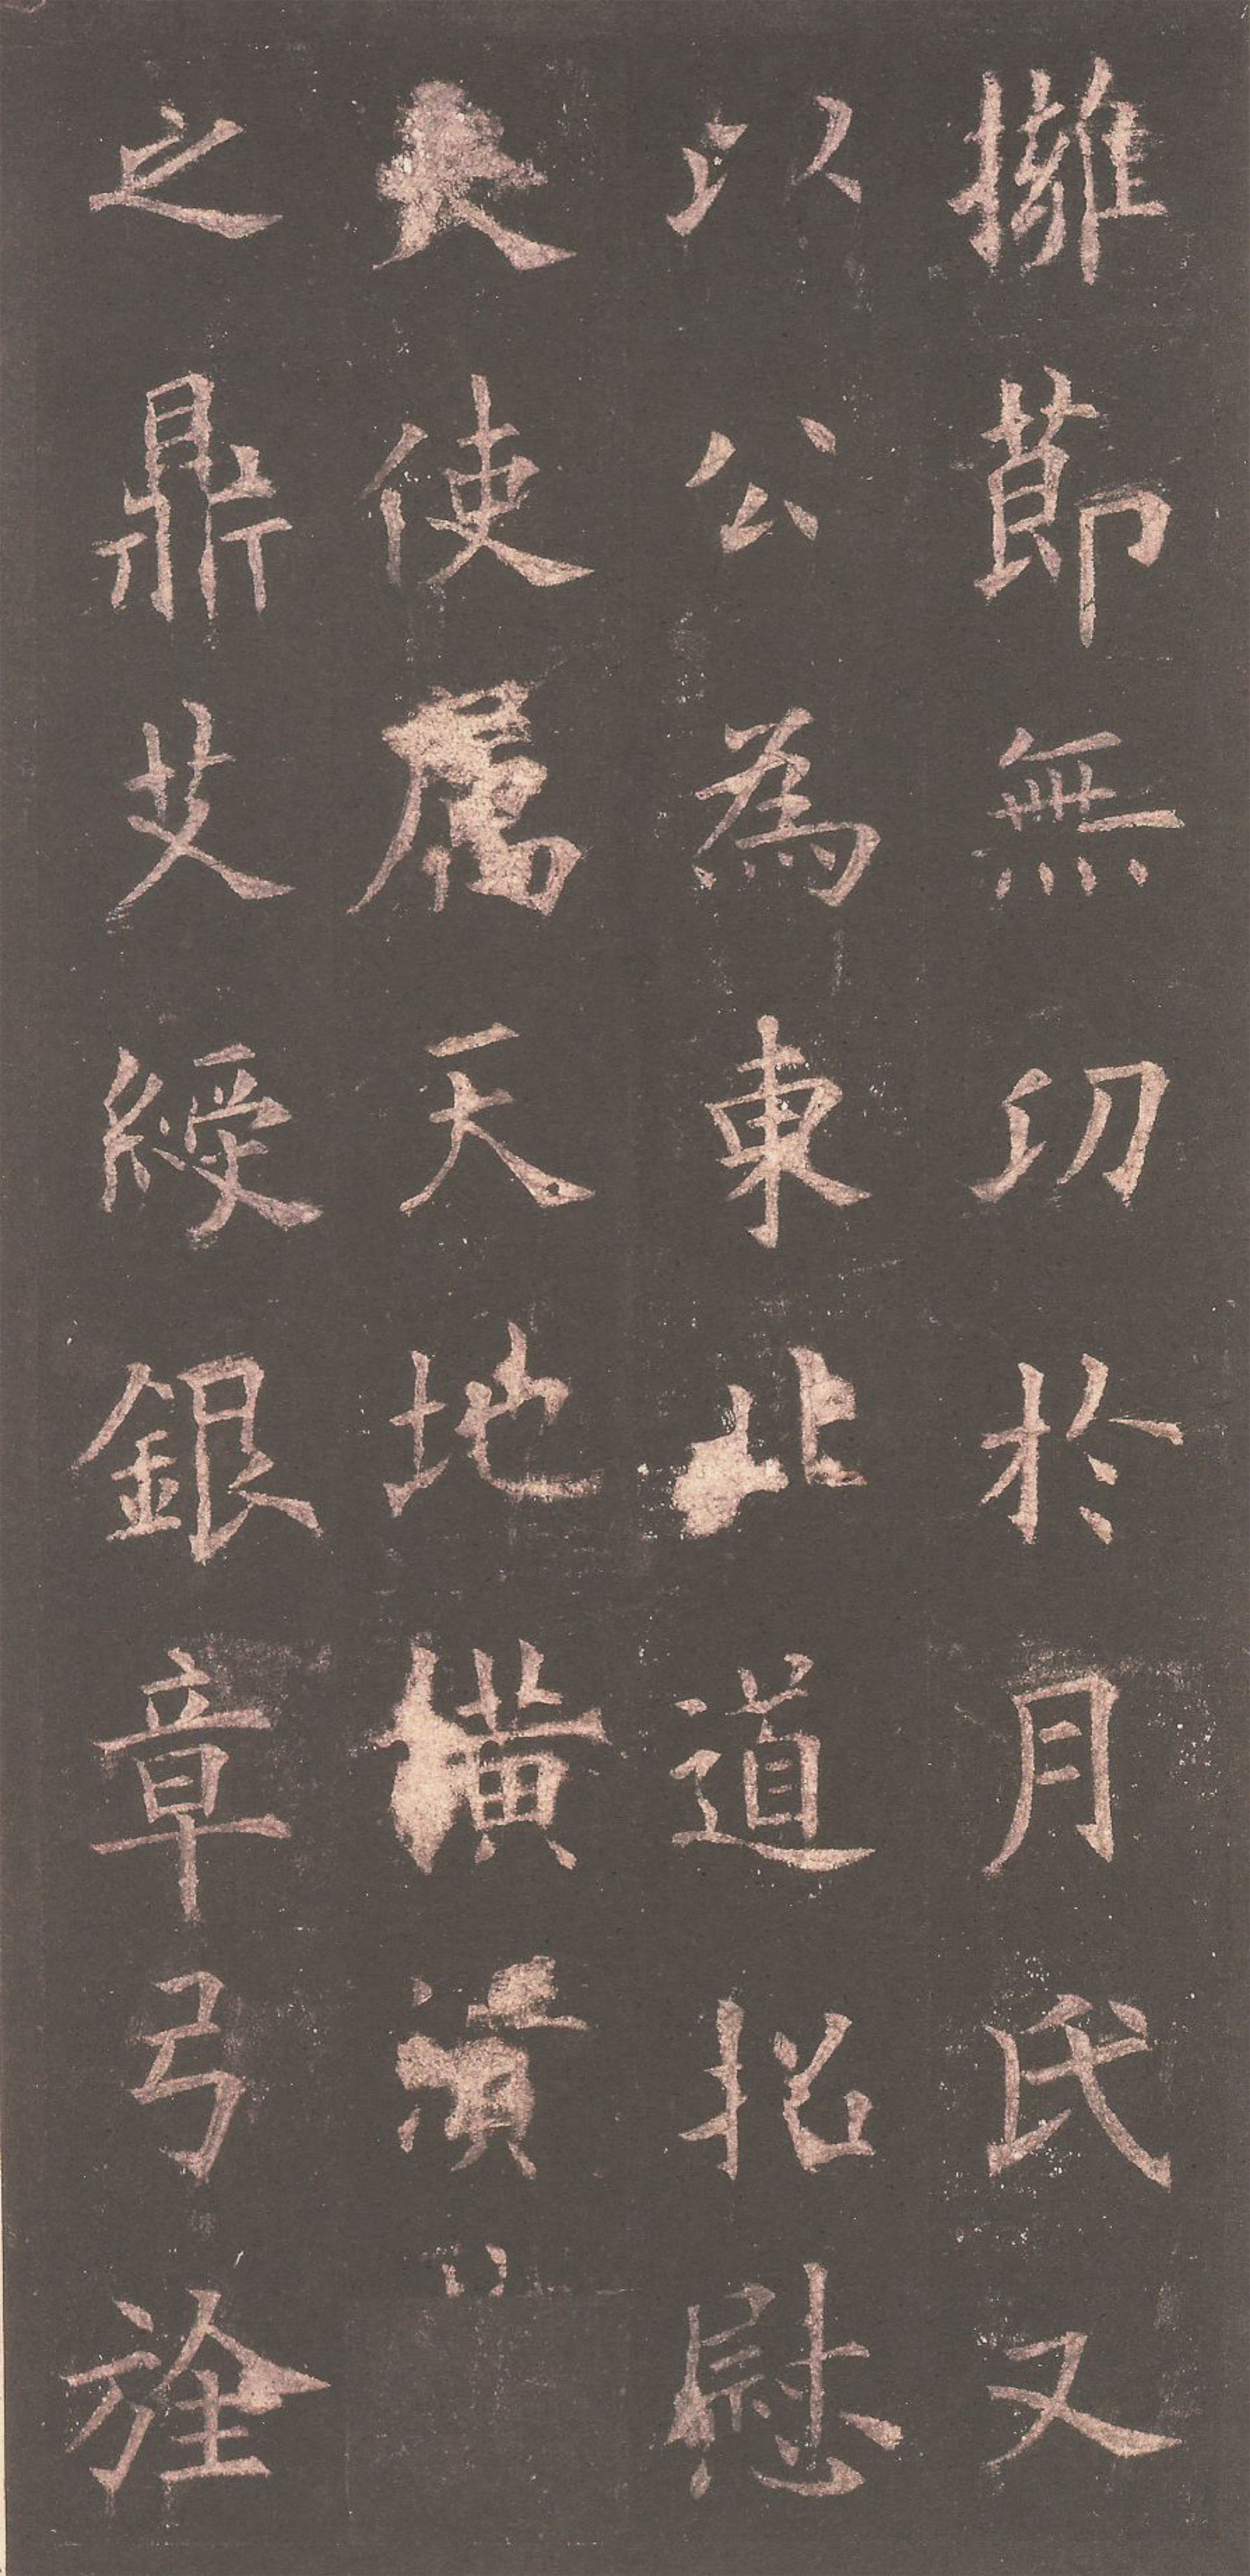 擁節無功於月氏又
以公為東北道招慰
大使屬天地橫潰
之鼎艾綬銀章弓旌